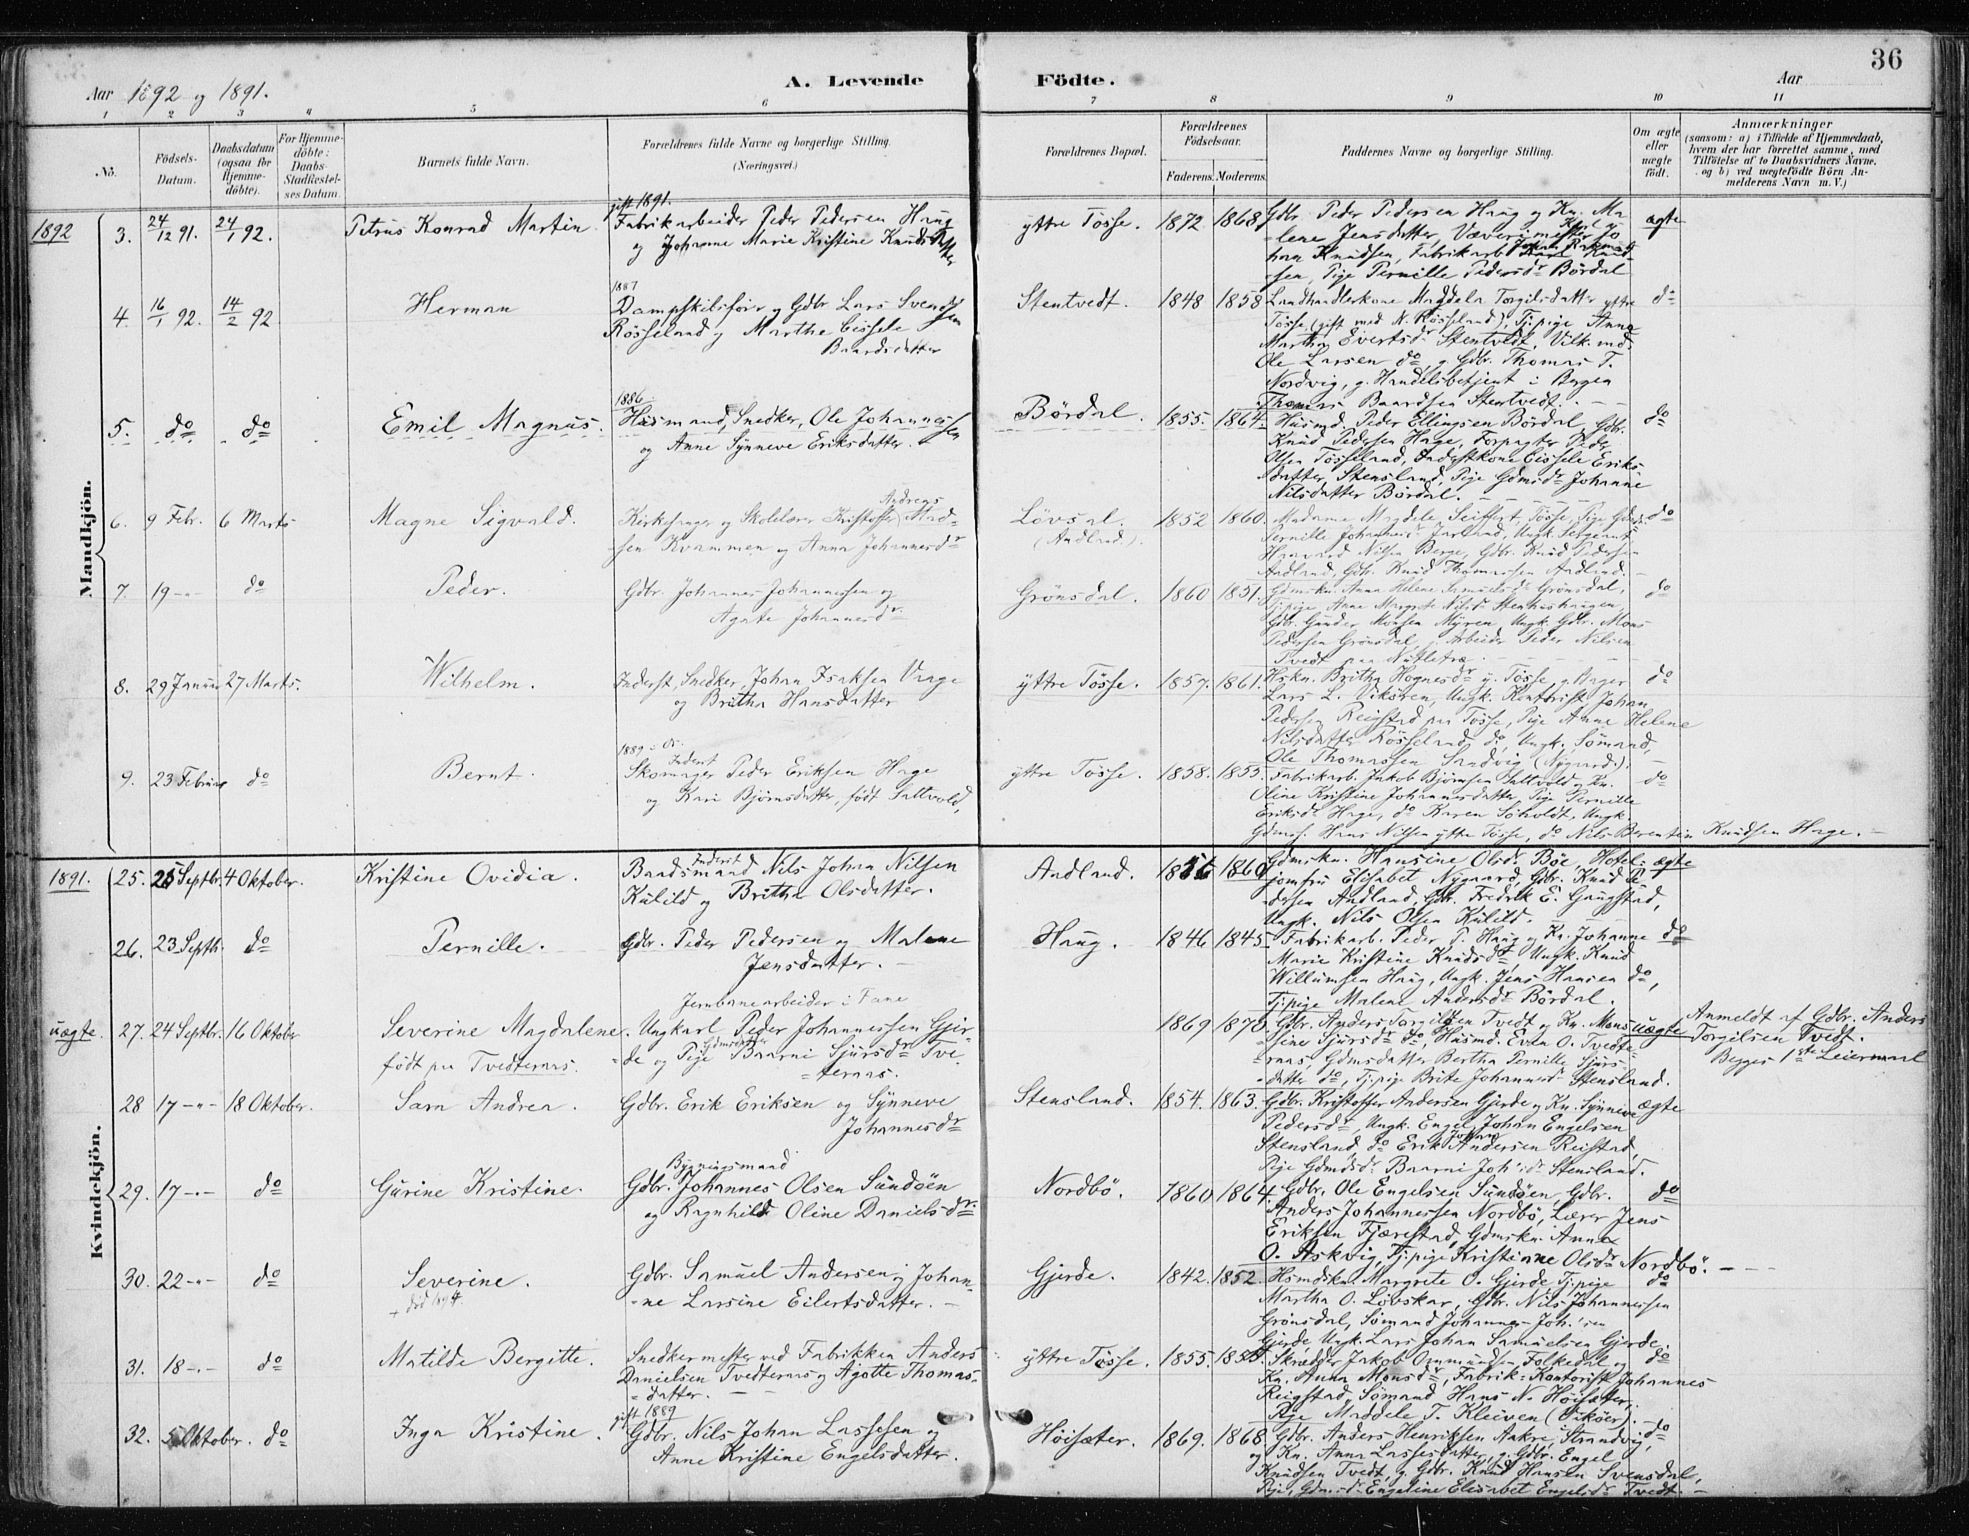 36
Aar 1892 og 1891.
A. Levende Födte.
Aar
1 2 3 4 5 6 7 8 9 10 11
No.
Födsels-Datum.
Daabsdatum (ogsaa for Hjemme-döbte).
For Hjemme-döbte: Daabs-Stadfæstel-ses Datum.
Barnets fulde Navn.
Forældrenes fulde Navne og borgerlige Stilling. (Næringsvei.)
Forældrenes Bopæl.
Forældrenes Födselsaar.
Faderens. Moderens.
Faddernes Navne og borgerlige Stilling.
Om ægte eller uægte födt.
Anmærkninger
(saasom: a) i Tilfælde af Hjemmedaab,
hvem der har forrettet samme, med
Tilföielse af to Daabsvidners Navne,
og b) ved uægtefödte Börn An-
melderens Navn m. V.)
Mandkjön.
1892
3. 24/12 91. 24/1 92. Petrus Konrad Martin
gift 1891.
Fabrikarbeider Peder Pedersen Haug
og Johanne Marie Kristine Knudsdatter
yttre Tösse. 1872 1868
Gdbr. Peder Pedersen Haug og Kn. Ma
lene Jensdatter, Vævermester Jo
han Knudsen, Fabrikarb.
sen, Pige Pernille Pedersdr Bördal
ægte
4. 16/1 92. 14/2 92 Herman
1887
Dampskibsförer og Gdbr Lars Svendsen
Rösseland og Marthe Cissele
Baardsdatter
Stentvedt. 1848 1858
Landhandlerkone Magdela Torgilsdatter yttre
Tösse (gift med N. Rösseland), Tjpige Anna
Martha Evertsdr Stentvedt, Vilk.md.
Ole Larsen do, g. Gdbr. Thomas T.
Nordvig, g. Handelsbetjent i Bergen
Thomas Baardsen Stentvedt.
do
5. do do Emil Magnus.
1886
Husmand, Snedker, Ole Johannessen
og Anne Synneve Eriksdatter.
Bördal. 1855. 1864.
Husmd. Peder Ellingsen Bördal, Gdbr.
Knud Pedersen Hage, Forpagter Peder
Olsen Tösseland, Inderstkone Cissele Eriks
datter, Stensland, Pige Gdmdr Johanne
Nilsdatter Bördal.
do
6. 9 Febr. 6 Marts Magne Sigvald.
Andreas
Kirkesanger og Skolelærer Kristoffer Mad-
sen Kvammen og Anna Johannesdr
Lövsal. (Aadland.) 1852 1860.
Madame Magdele Seiffert, Tösse, Pige
Pernille Johannesdr Jarland, Ungk. Sergeant
Haavard Nilsen Berge, Gdbr. Knud Pedersen
Aadland, Gdbr. Knud Thomassen Aadland.
do
7. 19 -"- do Peder.
Gdbr. Johannes Johannessen og
Agate Johannesdr
Grönsdal. 1860 1851.
Gdmskn. Anna Helene Samuelsdr Grönsdal,
Tjpige Anne Margrete Nilsdr Stenhushaugen,
Gdbr. Gunder Monsen Myren, Ungk. Gdbr. Mons
Pedersen Grönsdal, g. Arbeider Peder Nilsen
Tvedt paa
do
8. 29 Januar 27 Marts. Wilhelm.
Inderst, Snedker Johan Isaksen Vage
og Britha Hansdatter
yttre Tösse. 1857. 1861.
Hskn. Britha Hognesdr y. Tösse, g. Bager
Lars L. Vikören, Ungk. Kontorist Johan
Pedersen Reigstad paa Tösse, Pige Anne Helene
Nilsdatter Rösseland, do, Ungk. Sömand,
Ole Thomassen Sandvig (Nygaard).
do
9. 23 Februar do Bernt.
1889
Inderst
Skomager Peder Eriksen Hage
og Kari Bjørnsdatter, födt Saltvold.
yttre Tösse. 1858. 1855.
Fabrikarb. Jakob Bjørnsen Saltvold og Kn.
Oline Kristine Johannesdatter, Pige Pernille
Eriksdr Hage, do Karen Söholdt, Ungk.
Gdmss. Hans Nilsen yttre Tösse, do Nils Berentein Knudsen Hage.
do
Kvindekjön.
1891.
25. 25 Septbr. 4 Oktober. Kristine Ovidia.
Inderst
Baadsmand Nils Johan Nilsen
Kulild og Britha Olsdatter.
Aadland. 1856 1860
Gdmskn. Hansine Olsdr Böe, Hotel-
jomfru Elisabet Nygaard, Gdbr. Knud Pe
dersen Aadland, Gdbr. Fredrik E. Gaugstad,
Ungk. Nils Olsen Kulild.
ægte
26. 23 Septb. do Pernille.
Gdbr. Peder Pedersen og Malene
Jensdatter.
Haug. 1846 1845
Fabrikarb. Peder P. Haug og Kn. Johanne
Marie Kristine Knudsdr, Ungk. Knud
Willumsen Haug, Ungk. Jens Hansen do,
Tjpige Malene Andersdr Bördal.
do
uægte. 27. 24 Septbr. 16 Oktober Severine Magdalene.
födt paa Tvedteraas.
Jernbanearbeider i Fane
Ungkarl Peder Johannessen Gjer-
de og Pige Gdmsdatter Baarni Sjursdr Tve-
teraas.
1869 1870
Gdbr. Anders Torgilsen Tvedt og Kn. Mons
sine Sjursdr do, Husmd. Even O. Tvedte-
raas, Gdmsdatter Bertha Pernille Sjurs-
datter do, Tjpige Brite Johannesdr Stensland.
uægte
Anmeldt af Gdbr. Anders
Torgilsen Tvedt.
Begges 1ste Leiermaal
28 17 -"- 18 Oktober. Sara Andrea.
Gdbr. Erik Eriksen og Synneve
Johannesdr
Stensland. 1854. 1863.
Gdbr. Kristoffer Andersen Gjerde og Kn. Synneve
Pedersdr, Ungk. Engel Johan Engelsen
Stensland, do Erik Johan Andersen Reistad,
Pige Gdmdsdr Baarni Joh'sdr Stensland.
ægte
29. 17 -"- do Gurine Kristine.
Bygningsmand
Gdbr. Johannes Olsen Sundöen
og Ragnhild Oline Danielsdr
Nordbö. 1860 1864.
Gdbr. Ole Engelsen Sundöen, Gdbr.
Anders Johannessen Nordbö, Lærer Jens
Eriksen Fjærestad, Gdmskn. Anna
O. Askvig, Tjpige Kristianne Olsdr Nordbö.
do
30. 22 -"- do Severine.
+ död 1894.
Gdbr. Samuel Andersen og Johan-
ne Larsine Eilertsdatter.
Gjerde. 1842. 1852.
Hsmdskn. Margrete O. Gjerde, Tjpige
Martha O. Lövskar, Gdbr. Nils Johannessen
Grönsdal, Sömand Johannes Joh'sen
Gjerde, Ungk. Lars Johan Samuelsen Gjerde.
do
31. 18 -"- do Matilde Bergitte.
Snedkermester ved Fabrikken Anders
Danielsen Tvedteraas og Agotte Thomas-
datter.
yttre Tösse. 1855.
Skrædder Jakob Ommundsen Folkedal og
Kn. Anna Monsdr, Fabrik-Kontorist Johannes
Reigstad, Sömand Hans N. Höisæter,
Pige Maddele T. Kleiven (Viköer).
do
32. 5 Oktober. do Inga Kristine.
gift 1889
Gdbr. Nils Johan Lassesen og
Anne Kristine Engelsdatter.
Höisæter. 1869. 1868
Gdbr. Anders Henriksen Aakre, Strandvig,
og Kn. Anna Lassesdatter, g. Gdbr. Engel
Knudsen Tvedt, g. Gdbr. Knud Hansen Svensdal,
Pige, Gdm.dr Engeline Elisabet Engelsdr Tvedt.
do